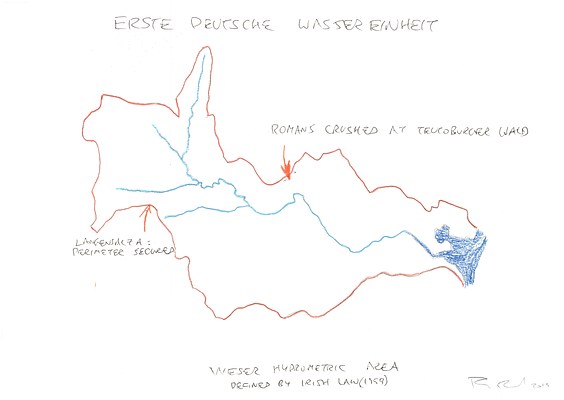 ERSTE DEUTSCHE WASSEREINHEIT
ROMANS CRUSHED AT TEUTOBURGER WALD
LANGENSALZA:
PERIMETER SECURED
WESER HYDROMETRIC AREA
DEFINED BY IRISH LAW (1959)